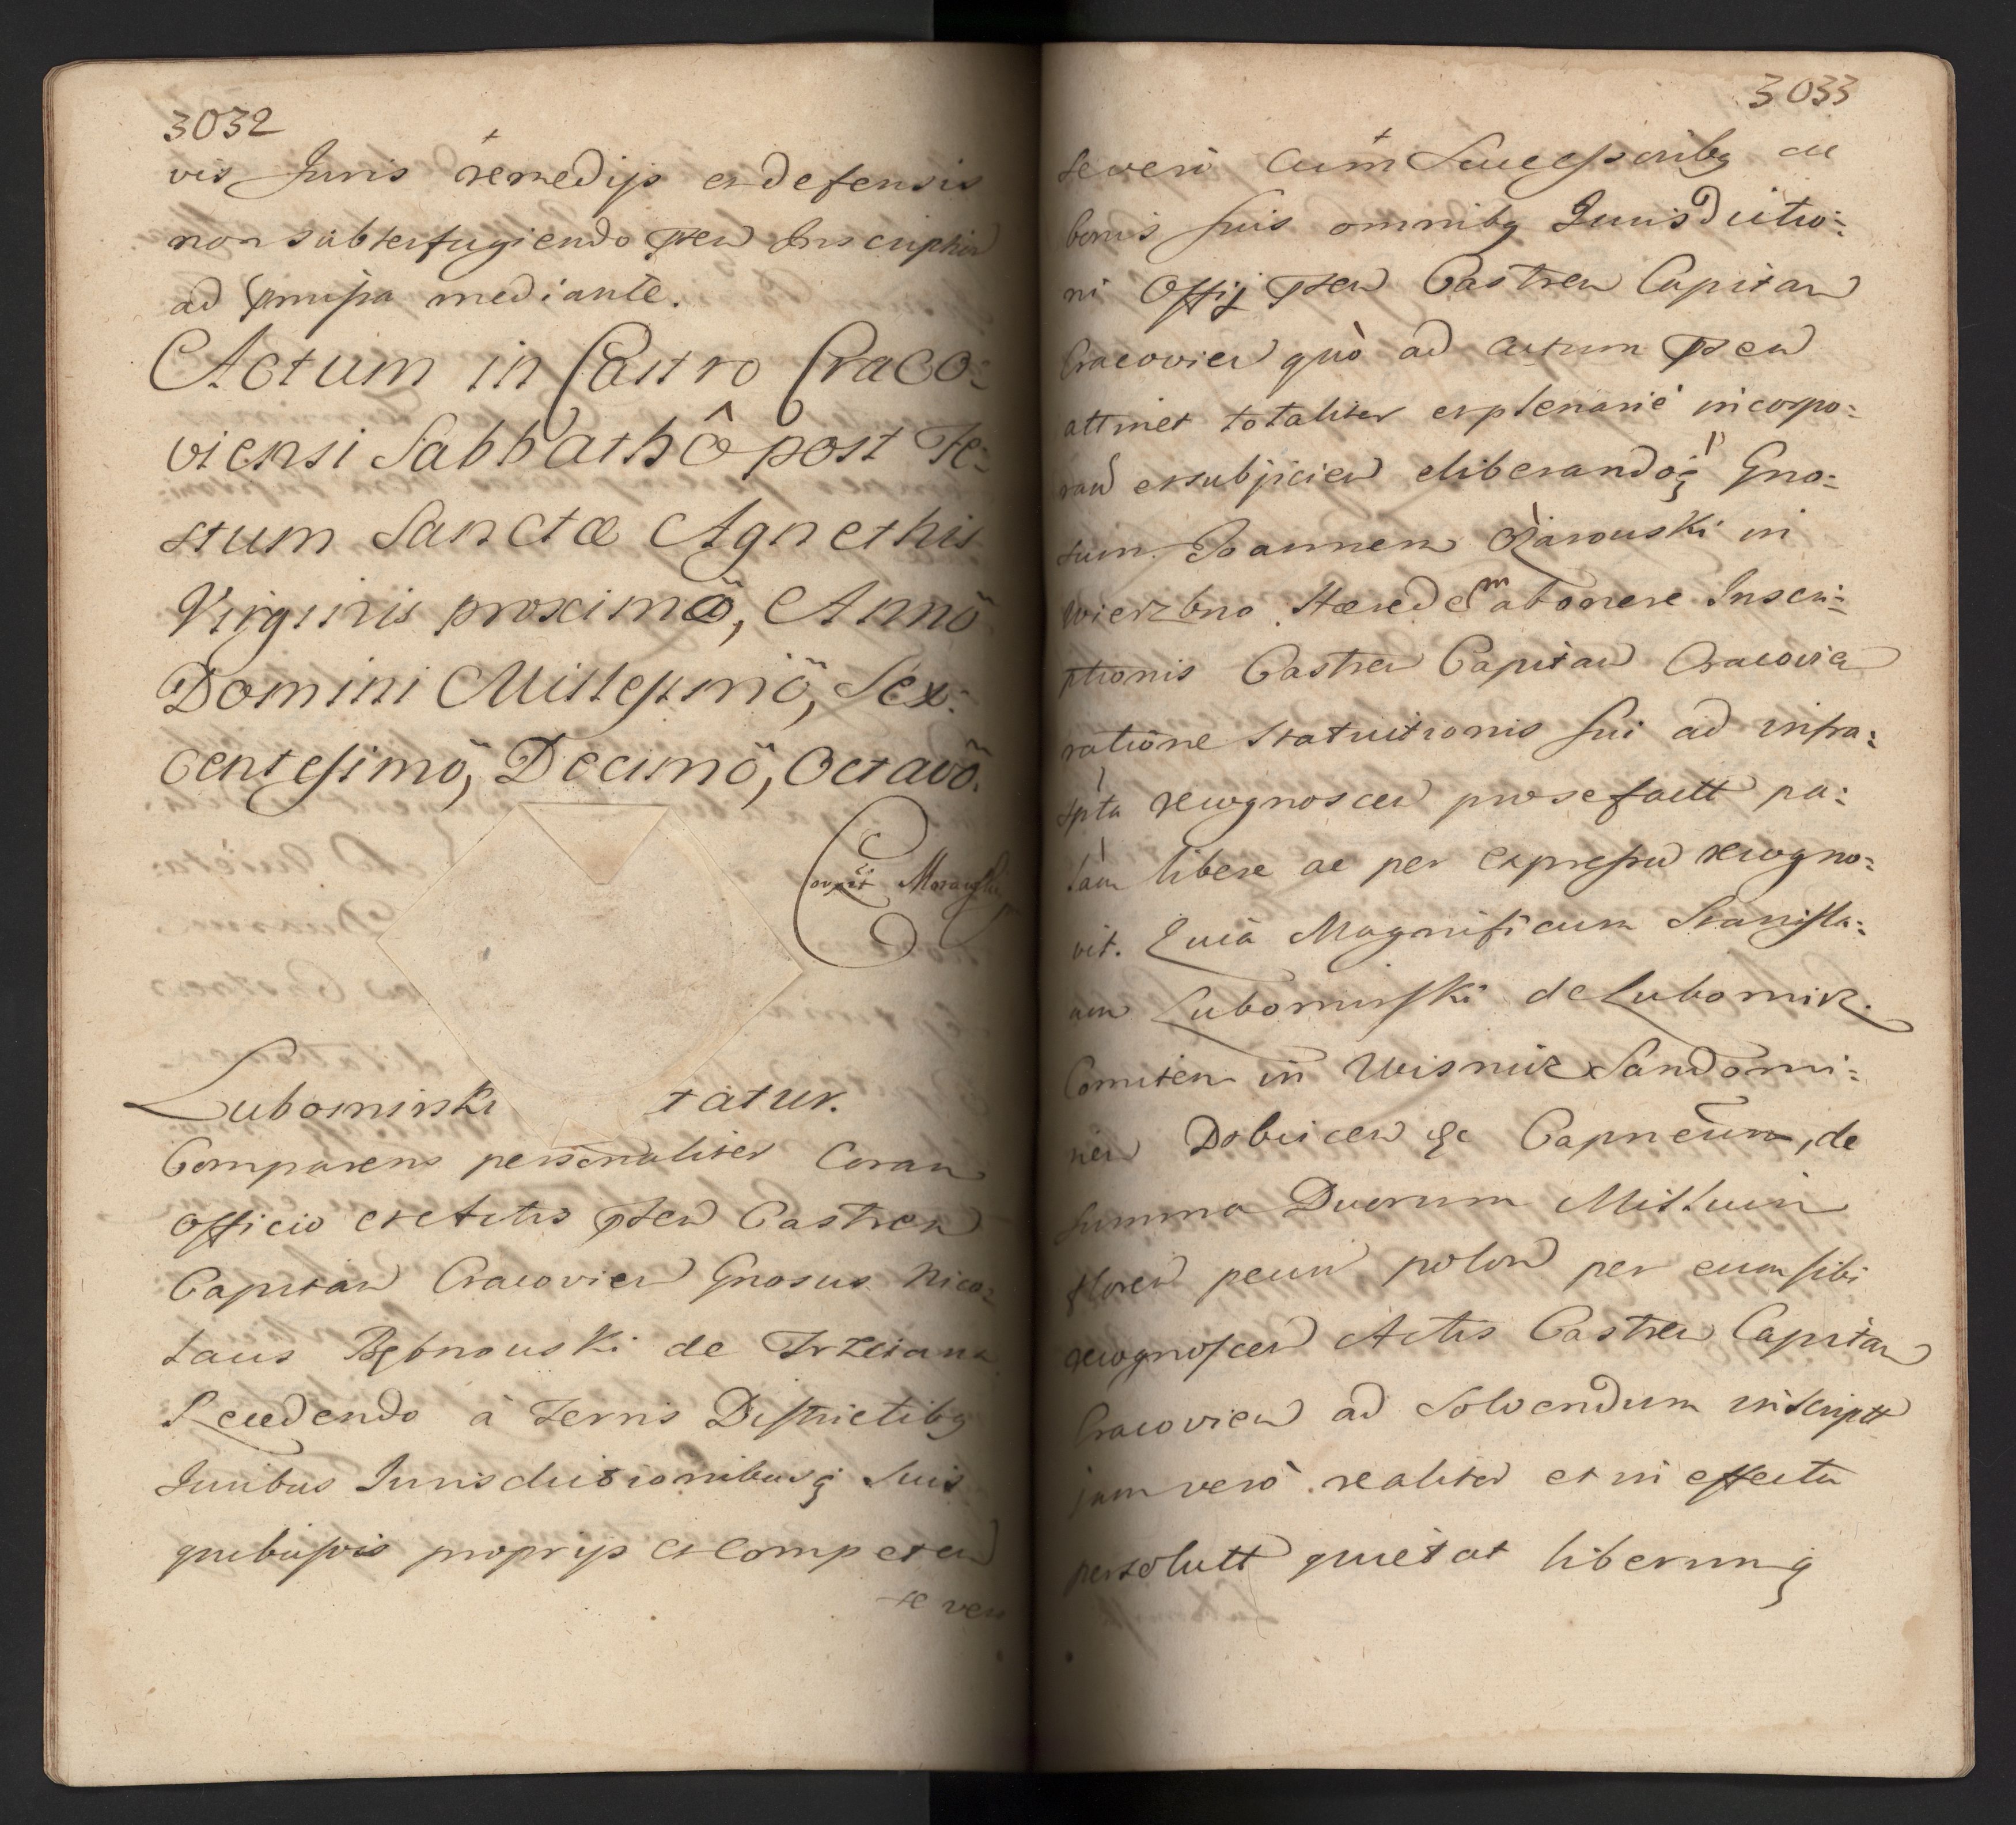 3032
vis Juris remedijs et defensis
non subterfugiendo pnten Inscriptin
ad pmissa mediante.
Actum in Castro Craco:
viensi Sabbathô post Fe:
stum Sanctæ Agnethis
Virginis proximô, Annô
Domini Millesimô, Sex:
centesimô, Decimô, Octavô.
Lubomirski tatur.
Comparens personaliter Coram
officio et Actis pnten Castren
Capitan Cracovien Gnosus Nico:
laus Bębnouski de Trzciana
Recedendo à Terris Districtibq
Juribus Jurisdictionibusq suis
quibusvis proprijs et competen
se vero
3033
se verò cum Successoribq ac
bonis suis omnibq Jurisdictio:
ni Officij pnten Castren Capitan
Cracovien quò ad actum pnten
attinet totaliter et plenarie incorpo:
ran et subjicien eliberandoq Gno:
sum Joannem Ożarouski in
Wierzbno Hæredem ab onere Inscri:
ptionis Castren Capitan Cracovien
ratione statuitionis sui ad infra:
spta recognoscen prosefactt pa:
lam libere ac per expressu recogno:
vit. Quia Magnificum Stanisla:
um Lubomirski de Lubomirz
Comitem in Wisnicz Sandomi:
rien Dobcicen &c Capneum, de
summa Duorum Millium
floren pecun polon per eum sibi
recognoscen Actis Castren Capitan
Cracovien ad solvendum inscriptt
jam verò realiter et in effectu
persolutt quietat liberumq